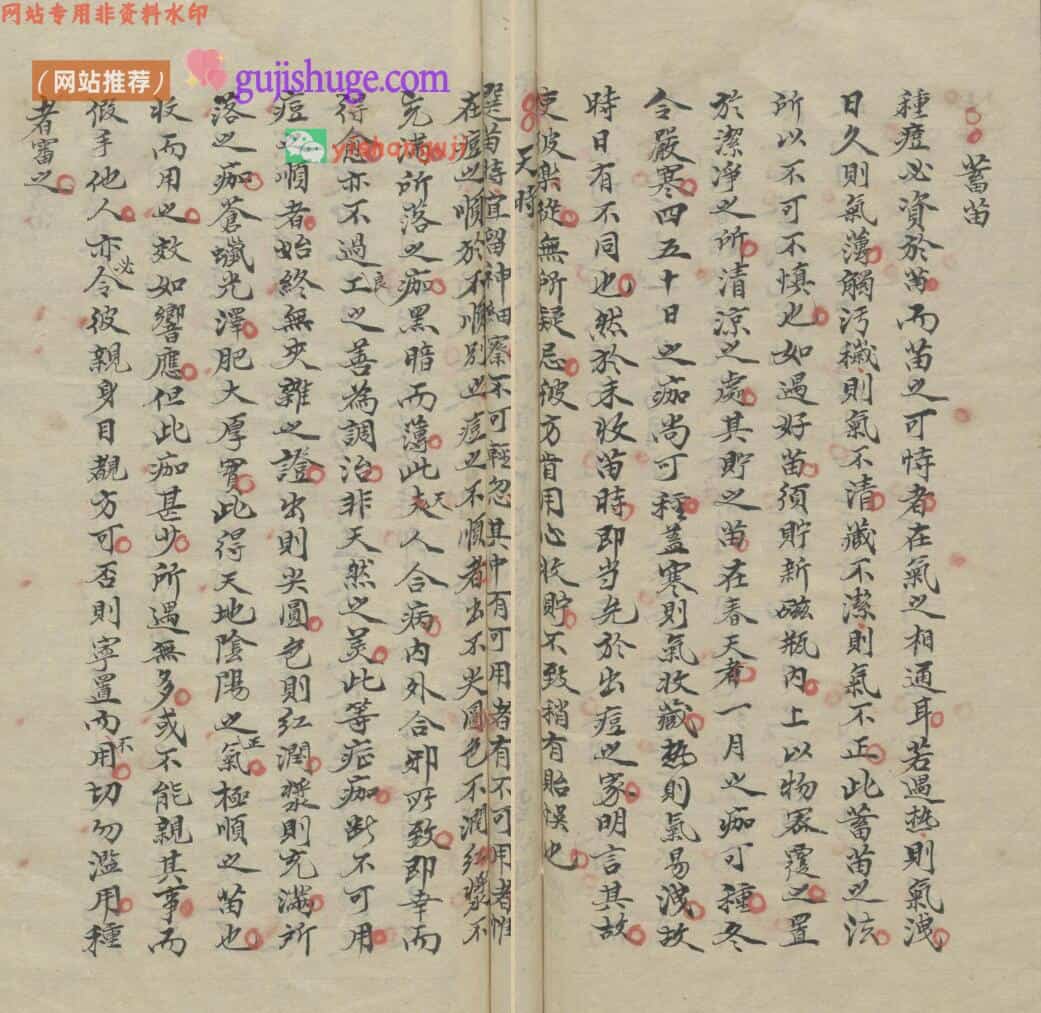 网站专用非资料水印
（网站推荐）
gujishuge.com
yishanguji
蓄苗
種痘必資於苗而苗之可恃者在氣之相通耳若過热則氣洩
日久則氣薄觸污穢則氣不清藏不潔則氣不正此蓄苗之法
所以不可不慎也如過好苗須貯新磁瓶内上以物宻覆之置
於潔淨之所清凉之處其貯之苗在春天者一月之痂可種冬
令嚴寒四五十日之痂尚可種葢寒則氣收藏热則氣易洩故
時日有不同也然於未收苗時即当先於出痘之家明言其故
使彼樂從無所疑忌彼方肯用心收貯不致稍有貽悞也
天時
選苗時宜留神細察不可輕忽其中有可用者有不可用者惟
在痘之順於不順別之痘之不順者出不尖圓色不潤红漿不
充滿所落之痂黑暗而薄此夫天人合病内外合邪所致即幸而
得愈亦不過工良之善為調治非天然之美此等症痂断不可用
痘之順者始終無夾雜之證出則尖圓色則红潤漿則充滿所
落之痂蒼蠟光澤肥大厚實此得天地陰陽之氣正極順之苗也
收而用之效如響應但此痂甚少所遇無多或不能親其事而
假手他人亦必令彼親身目覩方可否則寧置而用不切勿濫用種
者審之